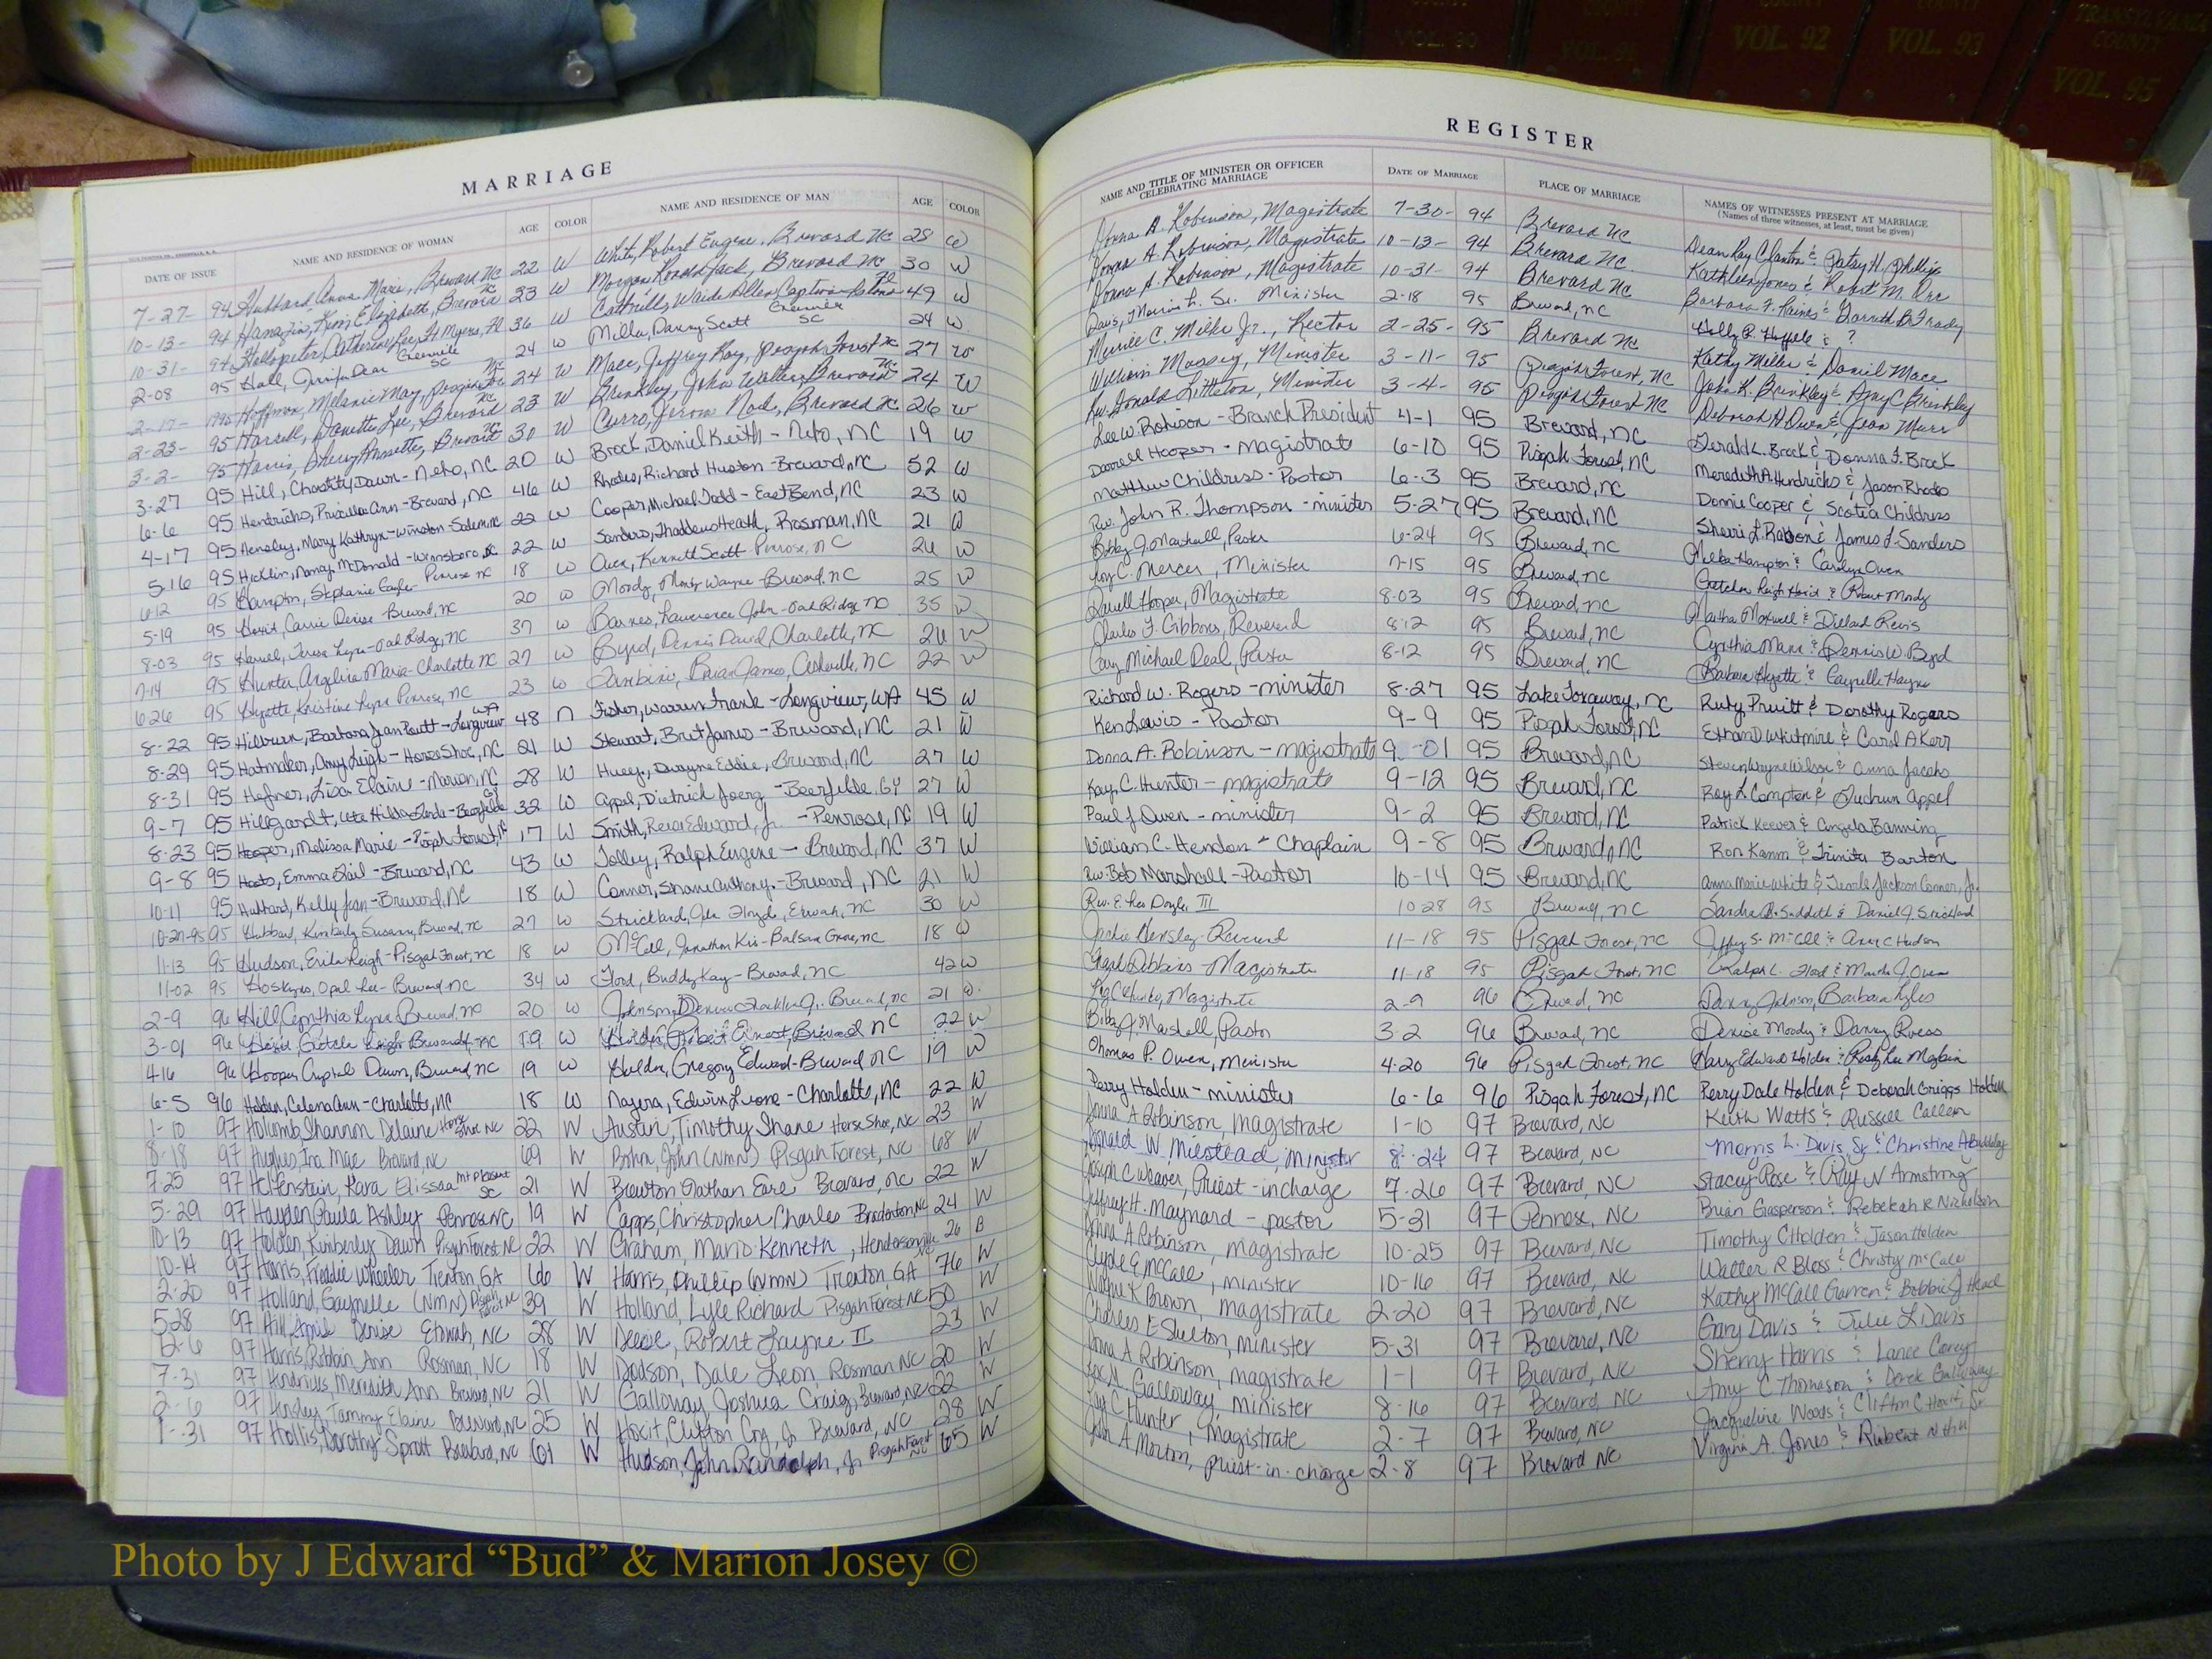 COUNTY
VOL. 90
COUNTY
VOL. 92
COUNTY
VOL. 93
TRANSYLVANIA
COUNTY
VOL. 95
MARRIAGE
DATE OF ISSUE NAME AND RESIDENCE OF WOMAN AGE COLOR NAME AND RESIDENCE OF MAN AGE COLOR
7-27- 94 Hubbard, Anna Marie, Brevard NC 22 W White, Robert Eugene, Brevard NC 28 W
10-13- 94 Elizabeth, Brevard NC 23 W Morgan, Ronald Jack, Brevard NC 30 W
10-31- 94 Ft Myers, Fl 36 W Waide Allen Fl 49 W
2-08 95 Hall, SC 24 W Danny Scott SC 24 W
2-17- 1995 Hoffman, Melanie May, Pisgah Forest NC 24 W Mace, Jeffrey Ray, Pisgah Forest NC 27 W
2-23- 95 Danette Lee, Brevard NC 23 W Brinkley, John Walter, Brevard NC 24 W
3-2- 95 Harris, Sherry Annette, Brevard NC 30 W Jerome Noel, Brevard NC 26 W
3-27 95 Hill, Chastity Dawn - NC 20 W Brock, Daniel Keith - NC 19 W
6-6 95 Hendricks, Priscilla Ann - Brevard, NC 46 W Rhodes, Richard Huston - Brevard, NC 52 W
4-17 95 Hensley, Mary Kathryn - Winston-Salem NC 22 W Cooper, Michael Todd - East Bend, NC 23 W
5-16 95 Hicklin, Nancy McDonald - Winnsboro, SC 22 W Sanders, Thaddeus Heath, Rosman, NC 21 W
6-12 95 Hampton, Stephanie Penrose NC 18 W Owen, Kenneth Scott Penrose, NC 26 W
5-19 95 Carrie Denise - Brevard, NC 20 W Moody, Wayne - Brevard, NC 25 W
8-03 95 Teresa Lynn - Oak Ridge, NC 37 W Barnes, Lawrence John - Oak Ridge NC 35 W
7-14 95 Hunter, Angelia Maria - Charlotte NC 27 W Byrd, Dennis David, Charlotte, NC 26 W
6 26 95 Hyatte, Kristine Lynn Penrose, NC 23 W Brian James, Asheville, NC 22 W
8-22 95 Hilburn, Barbara Jean Pruitt - Longview WA 48 N Fisher, Warren Frank - Longview, WA 45 W
8-29 95 Hatmaker, Amy Leigh - Horse Shoe, NC 21 W Stewart, Bret James - Brevard, NC 21 W
8-31 95 Hefner, Lisa Elaine - Marion, NC 28 W Huey, Dwayne Eddie, Brevard, NC 27 W
9-7 95 Hillgardt, Ute Hilda GY 32 W Appel, Dietrich Joerg - Beerfelde, GY 27 W
8-23 95 Hooper, Melissa Marie - Pisgah Forest, NC 17 W Smith, Edward, Jr. - Penrose, NC 19 W
9-8 95 Emma Gail - Brevard, NC 43 W Tolley, Ralph Eugene - Brevard, NC 37 W
10-11 95 Hubbard, Kelly Jean - Brevard, NC 18 W Conner, Shane Anthony - Brevard, NC 21 W
10-27-95 95 Hubbard, Kimberly Susanne, Brevard, NC 27 W Strickland, Floyd, Etowah, NC 30 W
11-13 95 Hudson, Erika Leigh - Pisgah Forest, NC 18 W McCall, Jonathan - Balsam Grove, NC 18 W
11-02 95 Opal Lee - Brevard, NC 34 W Ford, Buddy Ray - Brevard, NC 42 W
2-9 96 Hill, Cynthia Lynn, Brevard, NC 20 W Johnson, Brevard, NC 21 W
3-01 96 Brevard, NC 19 W Robert Ernest, Brevard NC 22 W
4 16 96 Hooper, Crystal Dawn, Brevard, NC 19 W Holden, Gregory Edward - Brevard NC 19 W
6-5 96 Holden, Celena Ann - Charlotte, NC 18 W Nagera, Edwin - Charlotte, NC 22 W
1-10 97 Holcomb, Shannon Delaine Horse Shoe NC 22 W Austin, Timothy Shane Horse Shoe, NC 23 W
8-18 97 Hughes, Ina Mae Brevard, NC 69 W Bohn, John (NMN) Pisgah Forest, NC 68 W
7-25 97 Kara Elissa Mt Pleasant SC 21 W Brewton Nathan Brevard, NC 22 W
5-29 97 Hayden, Paula Ashley Penrose NC 19 W Capps, Christopher Charles Bradenton 24 W
10-13 97 Holden, Kimberly Dawn Pisgah Forest NC 22 W Graham, Mario Kenneth, Hendersonville NC 26 B
10-14 97 Harris, Freddie Wheeler Trenton, GA 66 W Harris, Phillip (NMN) Trenton, GA 76 W
2-20 97 Holland, Gaynelle (NMN) Pisgah Forest NC 39 W Holland, Lyle Richard Pisgah Forest NC 50 W
5-28 97 Hill, April Denise Etowah, NC 28 W Robert Layne II 23 W
97 Harris, Robbin Ann Rosman, NC 18 W Dodson, Dale Leon Rosman NC 20 W
7-31 97 Hendricks, Meredith Ann Brevard, NC 21 W Galloway Joshua Craig, Brevard, NC 22 W
2-6 97 Hensley, Tammy Elaine Brevard, NC 25 W Hoxit, Clifton Jr Brevard, NC 28 W
1-31 97 Hollis, Dorothy Spratt Brevard, NC 61 W Hudson, John Randolph, Jr Pisgah Forest NC 65 W
REGISTER
NAME AND TITLE OF MINISTER OR OFFICER CELEBRATING MARRIAGE DATE OF MARRIAGE PLACE OF MARRIAGE NAMES OF WITNESSES PRESENT AT MARRIAGE
(Names of three witnesses, at least, must be given)
Donna A. Robinson, Magistrate 7-30- 94 Brevard NC Dean Ray Clanton & Patsy H. Phillips
Donna A. Robinson, Magistrate 10-13- 94 Brevard NC. Kathleen Jones & Robert M. Orr
Donna A. Robinson, Magistrate 10-31- 94 Brevard NC Barbara F. Raines & Garreth B. Frady
Davis, Morris L. Sr. Minister 2-18 95 Brevard, NC & ?
Merrill C. Miller Jr., Rector 2-25- 95 Brevard NC Kathy Miller & Daniel Mace
William Massey, Minister 3-11- 95 Pisgah Forest, NC John K. Brinkley & Amy C Brinkley
Rev. Donald Littleton, Minister 3-4- 95 Pisgah Forest NC Deborah H Owen & Jean
Lee W. Robison - Branch President 4-1 95 Brevard, NC Gerald L. Brock & Donna F. Brock
Darrell Hooper - Magistrate 6-10 95 Pisgah Forest, NC Meredith A. Hendricks & Jason Rhodes
Matthew Childress - Pastor 6-3 95 Brevard, NC Donnie Cooper & Scotia Childress
Rev. John R. Thompson - minister 5-27 95 Brevard, NC Sherri L. & James F. Sanders
Bobby J. Marshall, Pastor 6-24 95 Brevard, NC Hampton & Carolyn Owen
Roy C. Mercer, Minister 7-15 95 Brevard, NC Gretchen Leigh Hoxit & Robert Moody
Darrell Hooper, Magistrate 8-03 95 Brevard, NC Martha Maxwell & Dillard Revis
Charles F. Gibbons, Reverend 8-12 95 Brevard, NC Cynthia Mann & Dennis W. Byrd
Gary Michael Deal, Pastor 8-12 95 Brevard, NC Barbara Hyatte & Gaynelle Hayne
Richard W. Rogers - minister 8-27 95 Lake Toxaway, NC Ruby Pruitt & Dorothy Rogers
Ken Lewis - Pastor 9-9 95 Pisgah Forest, NC Ethan D Whitmire & Carol A Kerr
Donna A. Robinson - magistrate 9-01 95 Brevard, NC Steven Wayne Wilson & Anna Jacobs
Kay C. Hunter - magistrate 9-12 95 Brevard, NC Roy L. Compton & Gudrun Appel
Paul J Owen - minister 9-2 95 Brevard, NC Patrick Keever & Angela Banning
William C. Hendon - Chaplain 9-8 95 Brevard, NC Ron Kamm & Trinita Barton
Rev. Bob Marshall - Pastor 10-14 95 Brevard, NC Anna Marie White & Jackson Conner, Jr.
Rev. E. Les Doyle, III 10 28 95 Brevard, NC Sandra B. Suddeth & Daniel J. Strickland
Jackie Hensley - Reverend 11-18 95 Pisgah Forest, NC Jeffrey S. McCall & C Hudson
Robbins Magistrate 11-18 95 Pisgah Forest, NC Ralph L. Ford & J. Owen
Kay C Hunter, Magistrate 2-9 96 Brevard, NC Johnson, Barbara Lyles
Bobby J. Marshall, Pastor 3 2 96 Brevard, NC Denise Moody & Danny Ross
Thomas P. Owen, Minister 4-20 96 Pisgah Forest, NC Harry Edward Holden &
Perry Holden - minister 6-6 96 Pisgah Forest, NC Perry Dale Holden & Deborah Griggs Holden
Donna A Robinson, Magistrate 1-10 97 Brevard, NC Keith Watts & Russell
Donald W Milstead, Minister 8-24 97 Brevard, NC Morris L. Davis, Sr & Christine A
Joseph C Weaver, Priest-in charge 7-26 97 Brevard, NC Stacey Rose & Ray N Armstrong
Jeffrey H. Maynard - pastor 5-31 97 Penrose, NC Brian Gasperson & Rebekah R Nicholson
Donna A Robinson, magistrate 10-25 97 Brevard, NC Timothy C Holden & Jason Holden
Clyde G McCall, minister 10-16 97 Brevard, NC Walter R Bless & Christy McCall
K Brown, magistrate 2-20 97 Brevard, NC Kathy McCall Garren & Bobbie J Head
Charles E Shelton, Minister 5-31 97 Brevard, NC Gary Davis & Julie L Davis
Donna A Robinson, magistrate 1-1 97 Brevard, NC Sherry Harris & Lance
Galloway, minister 8-16 97 Brevard, NC Amy C Thomason & Derek Galloway
Kay C Hunter, Magistrate 2-7 97 Brevard, NC Jacqueline Woods & Clifton C Hoxit, Sr
John A Morton, priest-in-charge 2-8 97 Brevard NC Virginia A. Jones & Robert N
Photo by J Edward “Bud” & Marion Josey ©